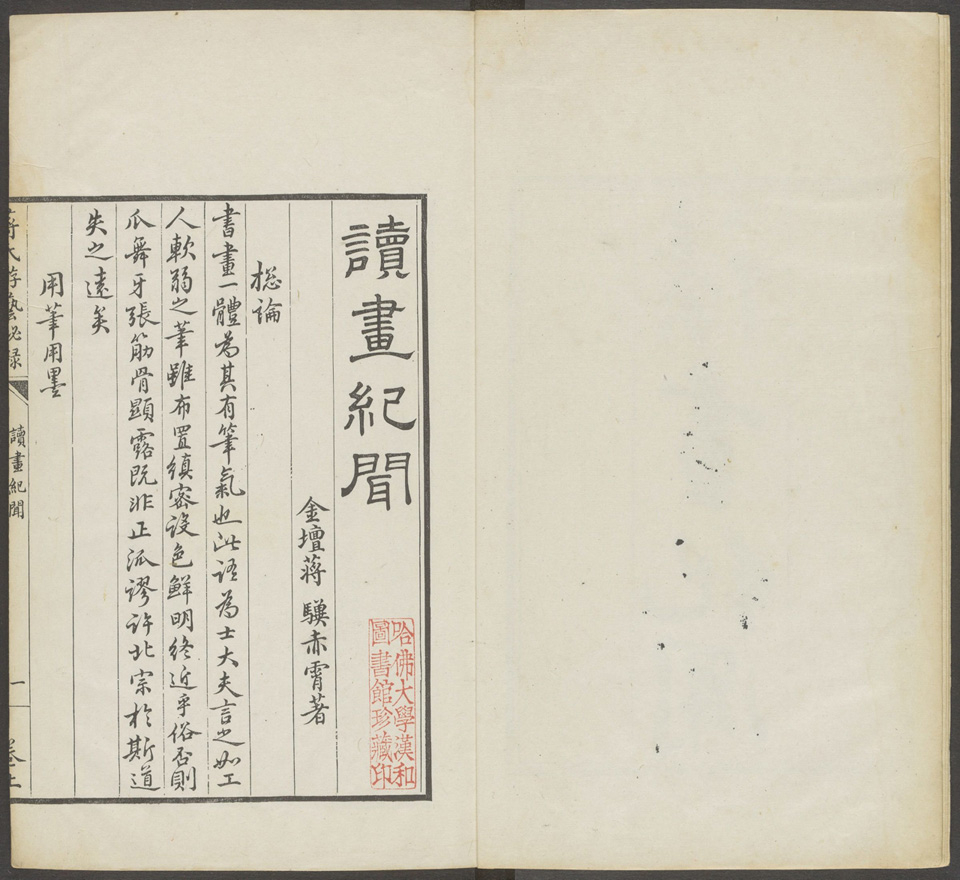 讀畫紀聞
金壇蔣驥赤霄著
總論
書畫一體為其有筆氣也此語為士大夫言之如工
人軟弱之筆雖布置縝密設色鮮明終近乎俗否則
爪舞牙張筋骨顯露既非正派謬許北宗於斯道
失之遠矣
用筆用墨
蔣氏游藝秘録
讀畫紀聞
一
卷上
哈佛大學漢和
圖書館珍藏印